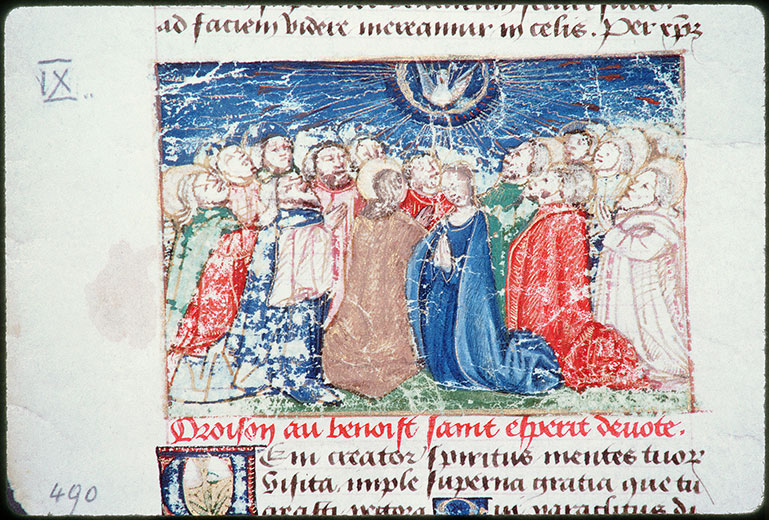 ad faciem videre mereamur in celis. Per xp̅ꝫ
IX..
Oroison au benoist saint esperit devote.
Veni creator spiritus mentes tuoꝝ
visita, imple superna gratia que tu
creasti pectora Qui paraclitus di
490